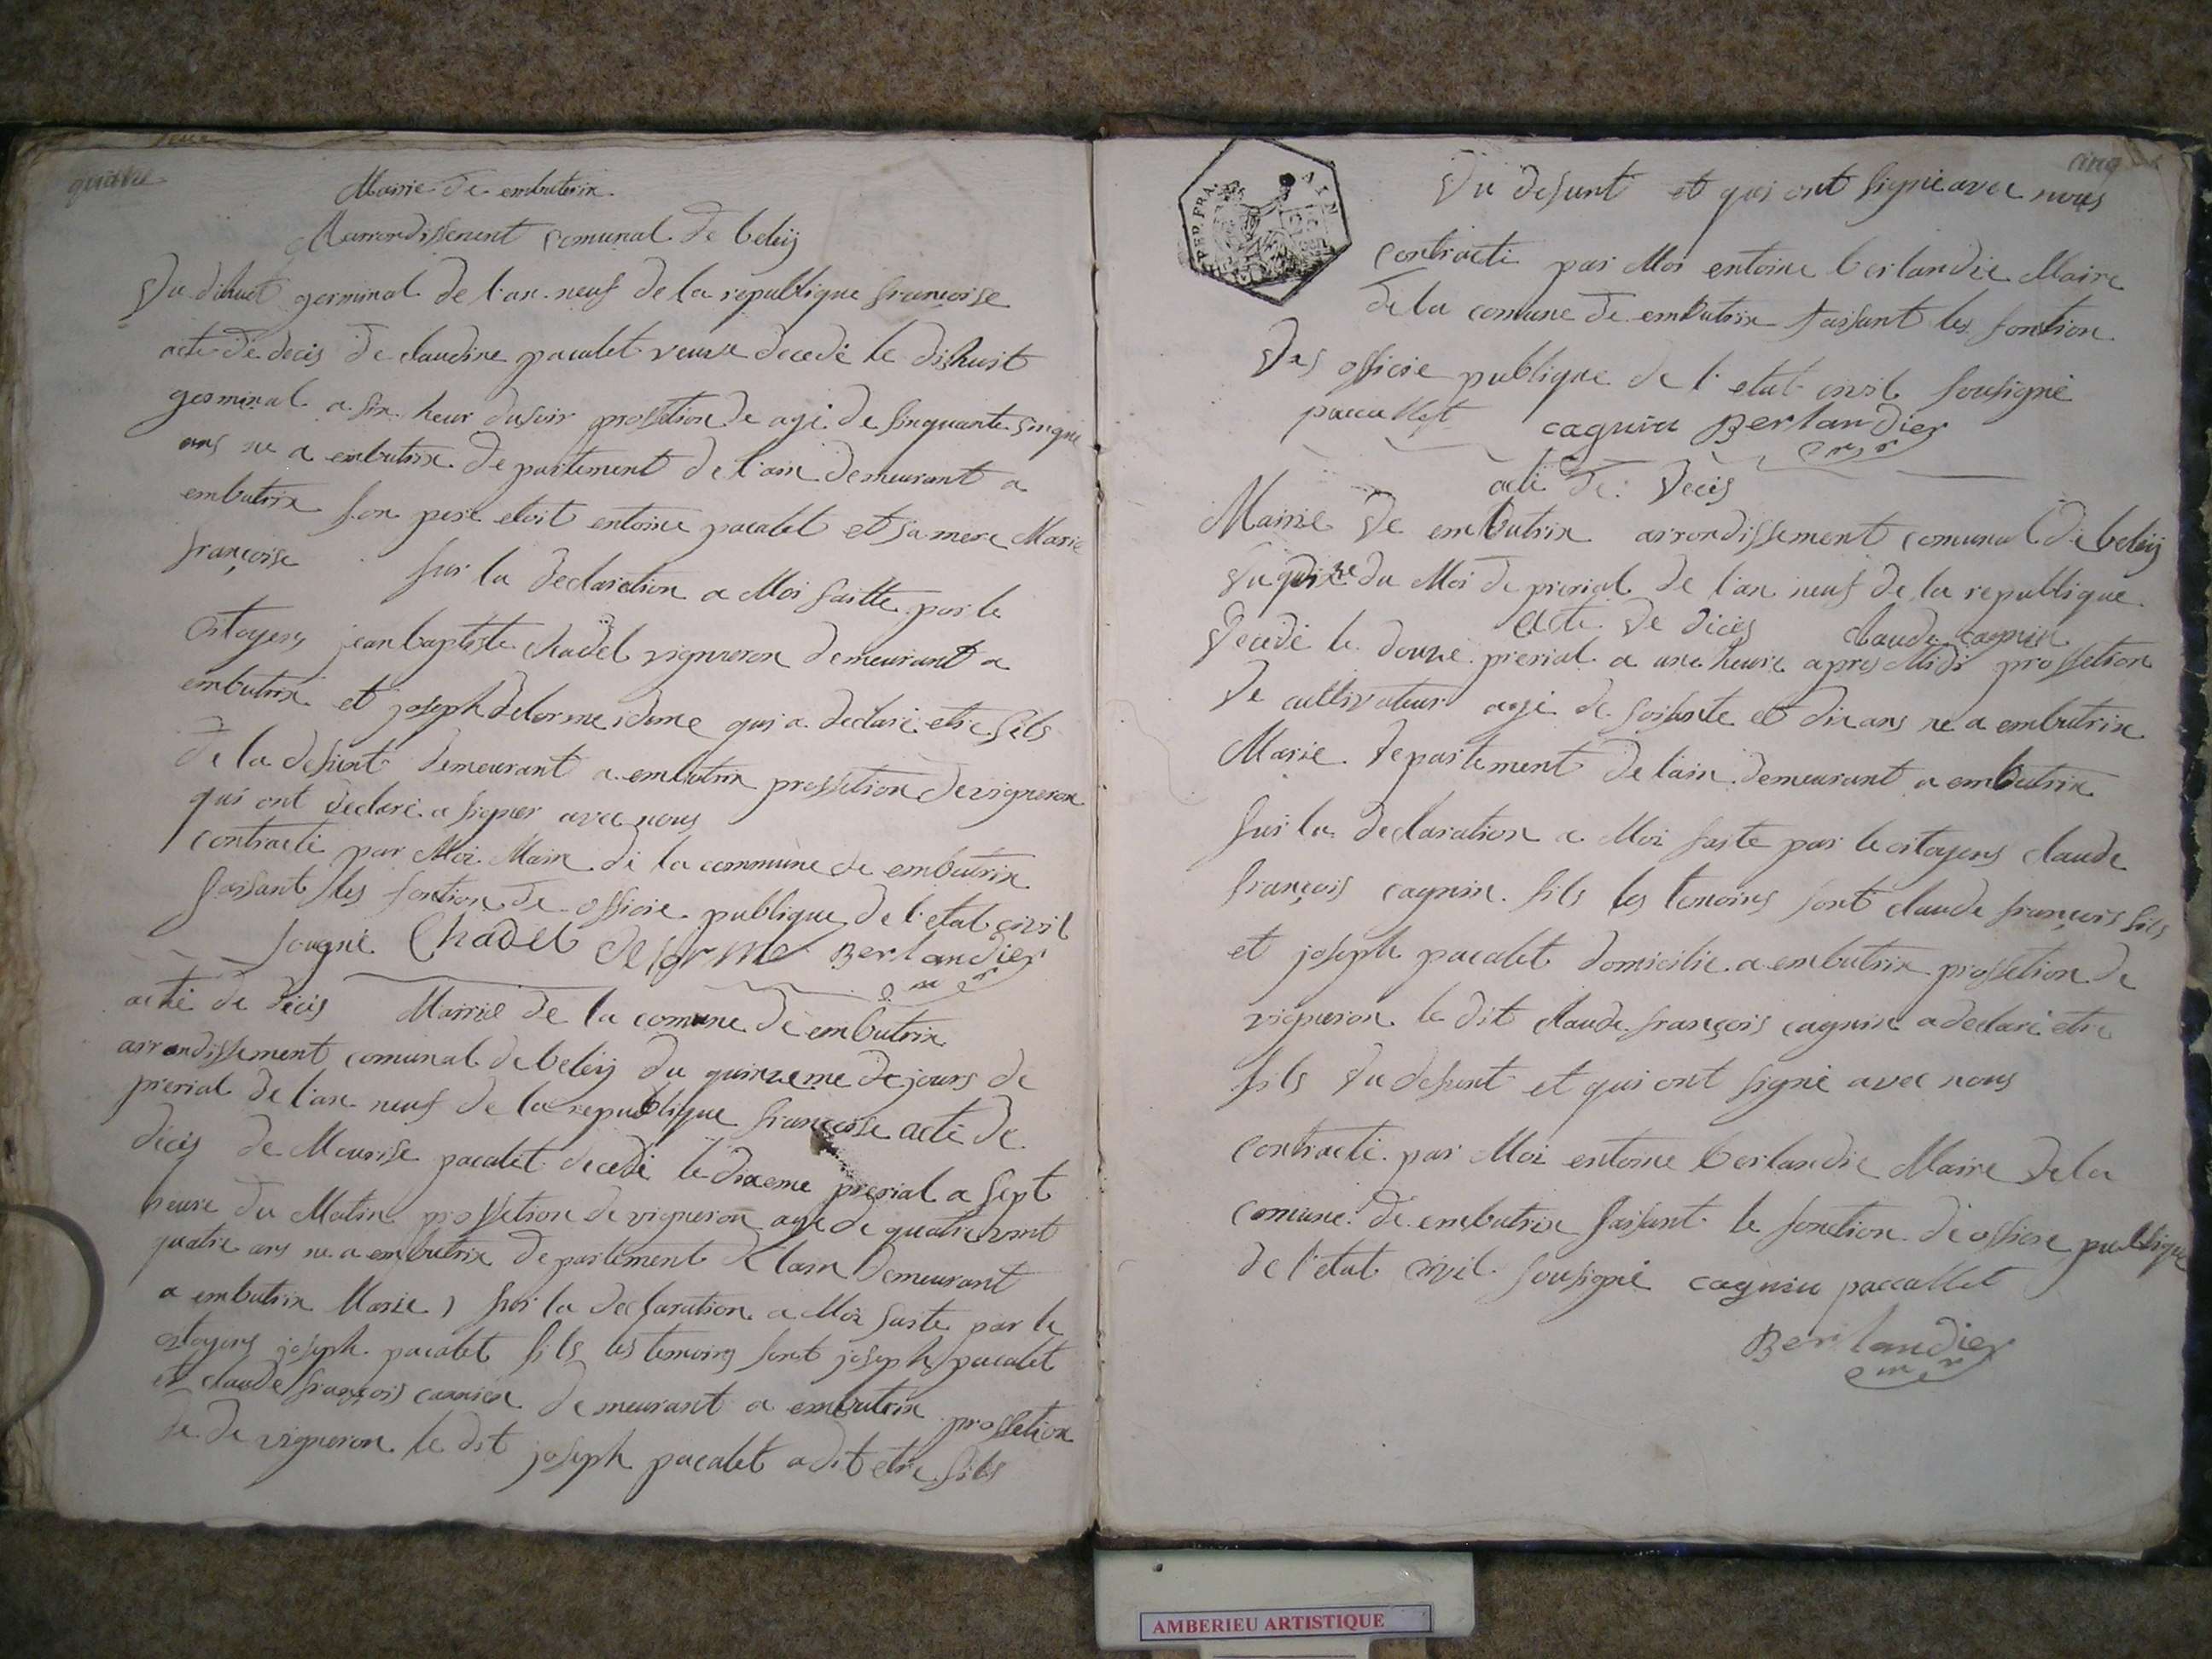 quatre
Mairie de embutrix
Marrondissement comunal de beleÿ
Du dihuet germinal de l'an neuf de la republique françoise
acte de decis de claudine pacalet veuve decede le dishuit
germinal a six heur du soir profsetion de agé de sinquante sinque
ans ne a embutrix departement de l'ain demeurant a
embutrix son pere etoit entoine pacalet et sa mere Marie
françoise sur la declaration a Moi faitte par le
citoyens jean baptiste chadel vigneron demeurant a
embutrix et joseph delorme idme qui a declaré etre fils
de la defunt demeurant a embutrix profsetion de vigneron
qui ont declaré a signer avec nous
contracté par Moi Maire de la commune de embutrix
faisant les fontion de officie publique de l'etat civil
sougné Chadel delorme Berlandier
acte de décis Mairie de la comune de embutrix
arrondissement comunal de beleÿ du quinzeme de jours de
prerial de l'an neuf de la republique françoise acte de
décis de Mourise pacalet decedé le dixeme prerial a sept
heure du Matin profsetion de vigneron age de quatre vint
quatre ans ne a embutrix departement de lain demeurant
a embutrix Marie, sur la declaration a Moi faite par le
citoyens joseph pacalet fils les temoins sont joseph pacalet
et claude françois cannien demeurant a embutrix profsetion
de vigneron le dit joseph pacalet a dit etre fils
cinq
REP. FRA. AIN
Du defunt et qui ont signé avec nous
contracté par Moi entoine berlandie Maire
de la comune de embutrix faisant les fontion
Des officie publique de l'etat civil sousigné
paccallet cagnin Berlandier
acte de Decis
Mairie De embutrix arrondissement comunal de beleÿ
Du quinze du Moi de prerial de l'an neuf de la republique
acte de décis claude cagnin
Decedé le douze prerial a une heure apres Midi profsetion
De cultivateur agé de soisante et dix ans ne a embutrix
Marie departement de lain demeurant a embutrix
sur la declaration a Moi faite par le citoyens claude
françois cagnin fils les temoins sont claude françois fils
et joseph pacalet domicilie a embutrix profsetion de
vigneron le dit claude françois cagnin a declaré etre
fils du defunt et qui ont signé avec nous
contracté par Moi entoine berlandie Maire de la
comune de embutrix faisant le fonction de officie publique
de l'etat civil sousigné cagnin paccallet
Berlandier
AMBERIEU ARTISTIQUE